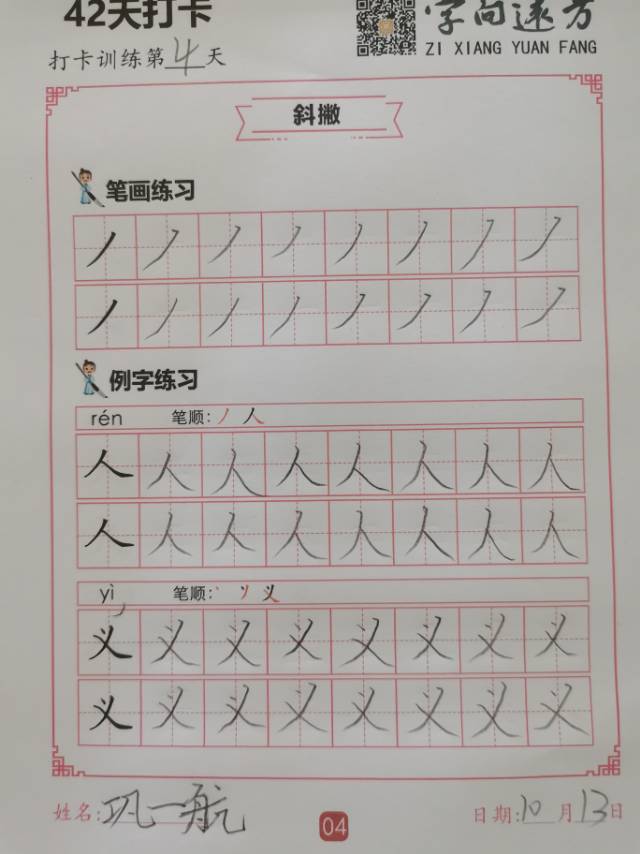 42天打卡
字向远方
ZI XIANG YUAN FANG
打卡训练第4天
斜撇
笔画练习
丿丿丿丿丿丿丿丿
丿丿丿丿丿丿丿丿
例字练习
rén 笔顺:丿人
人人人人人人人人
人人人人人人人人
yì 笔顺:丶丷义
义义义义义义义义
义义义义义义义义
姓名:巩一航
04
日期:10月13日